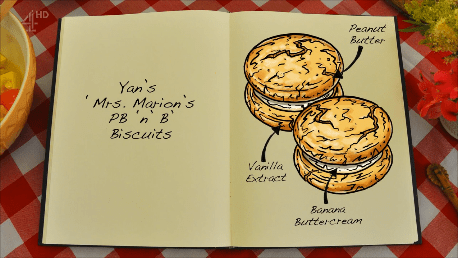 4HD
Yan's
'Mrs. Marion's
PB 'n' B'
Biscuits
Peanut
Butter
Vanilla
Extract
Banana
Buttercream